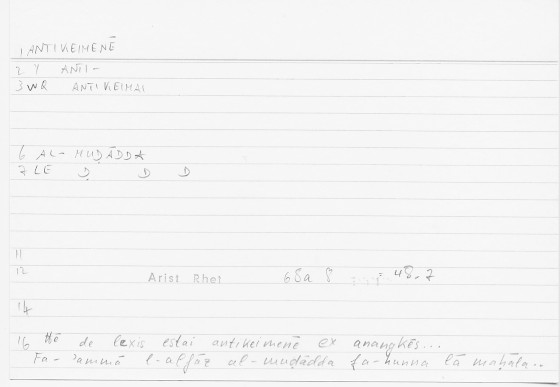 1 ANTIKEIMENĒ
2 Y ANTI-
3 WQ ANTIKEIMAI
6 AL- MUḌĀDDA
7 LE Ḍ D D
11
12 Arist Rhet 68a 8 : 48.7
14
16 Hē de lexis estai antikeimenē ex anangkēs...
Fa-'ammā l-alfāẓ al-muḍādda fa-hunna lā maḥāla..